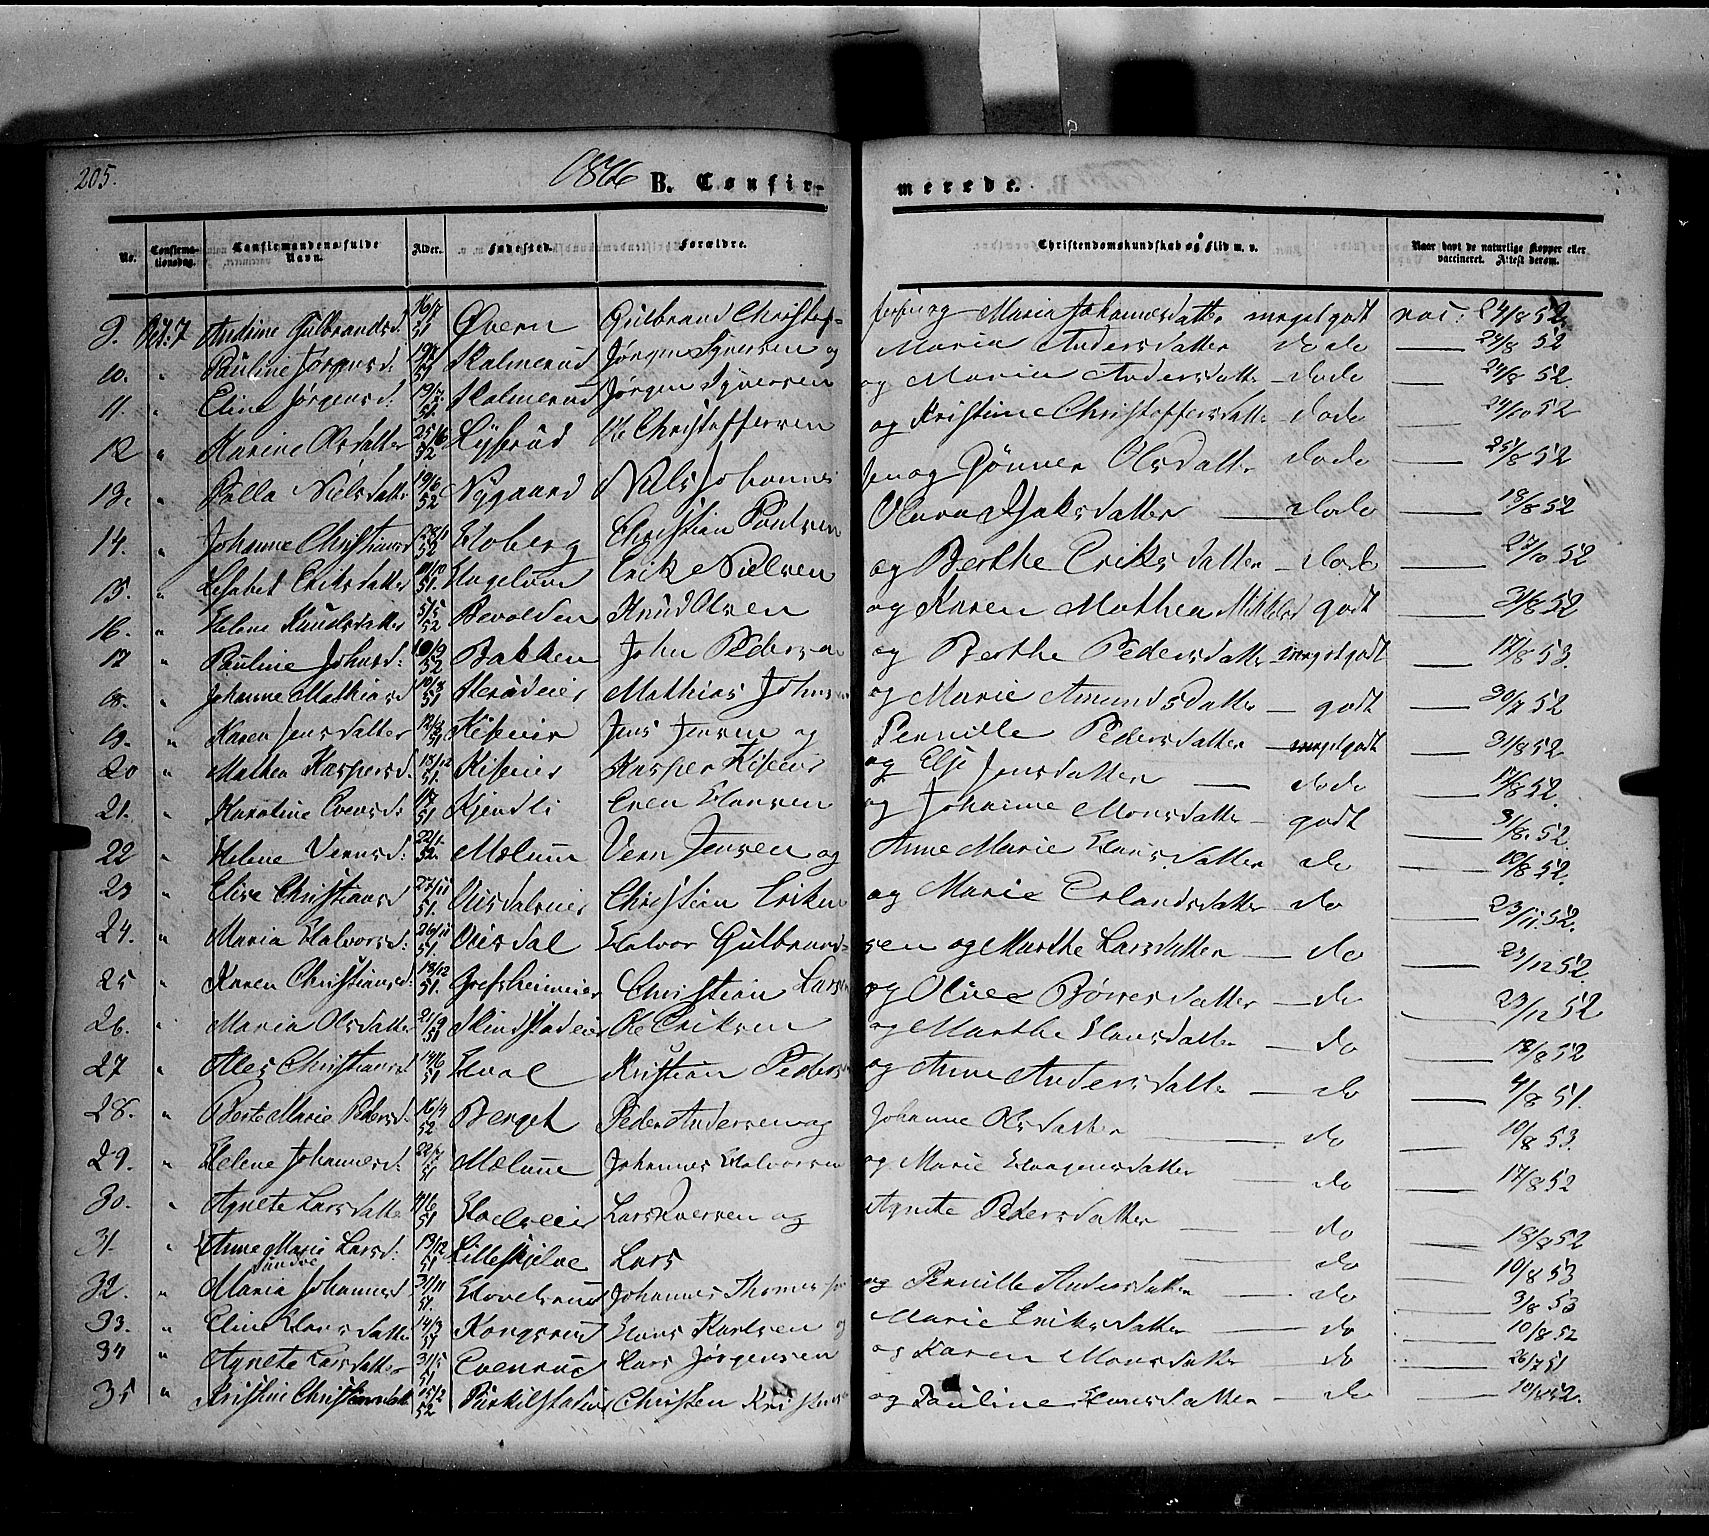 205.
1866 B. Confir-
merede.
No. Confirma-tionsdag. Confirmandens fulde Navn. Alder. Fødested. Forældre. Christendomskundskab og Flid m. v. Naar havt de naturlige Kopper eller vaccineret. Attest derom.
9. Andine Gulbrandsd. 16/7 51 Øvern Gulbrand Christof- fersen og Maria Johannesdatter meget godt vac: 24/8 52
10. " Pauline Jørgensd. 51 Skalmerud Jørgen Syversen og Maria Andersdatter do do — 24/8 52
11. " Eline Jørgensd. Skalmerud Jørgen Syversen og Maria Andersdatter — do do — 24/8 52
12 " Karine Olsdatter 25/6 52 Lysserud Ole Christoffersen og Kristine Christoffersdatter do do — 24/10 52
13. " Pella Nielsdatter 19/6 52 Nygaard Niels Johannes sen og Gønner Olsdatter do do — 25/8 52
14. " Johanne Christians 52 Hoberg Christian Paulsen Olava Isaksdatter — do do — 18/8 52
15. " Lisabet Eriksdatter 51. Hagelund Erik Nielsen og Berthe Eriksdatter — do do — 27/10 52
16. " Helene Knudsdatter 5/5 52 Bevolden Knud Olsen og Karen Mathea Mikkelsd godt — 31/8 52
17 " Pauline Johnsd: 10/9 52 Bakken John Pedersen og Berthe Pedersdatter meget godt — 17/8 53.
18. " Johanne Mathiasd 51 Mathias Johnsen og Marie Amundsdatter — godt — 30/7 52
19. " Karen Jensdatter 51 Kiseeier Jens Jensen og Pernille Pedersdatter — meget godt — 31/8 52
20 " Mathea Kaspersd. 18/12 51. Kiseeier Kasper Kiseeie og Else Jensdatter — do do — 17/8 52.
21. " Karoline Evensd: 51 Kjendli Even Hansen og Johanne Monsdatter — godt — 31/8. 52
22 " Helene Vernsd: 22/1 52. Mælum Vern Jensen og Anne Marie Hansdatter do — 18/8 52.
23 " Elise Christiansd 27/11 51. Christian Eriksen og Marie Erlandsdatter do — 23/11. 52.
24. " Maria Halvorsd. 26/11 51. Halvor Gulbrand- sen og Marthe Larsdatter — do — 23/12 52.
25 " Karen Christiansd: 18/12 51. Grefsheimeier Christian Larsen og Olive Børresdatter — do — 23/12 52
26. " Maria Olsdatter 21/9 51 Skindstadeier Ole Eriksen og Marthe Hansdatter — do — 18/8 52
27 " Christiansd 14/6 51 Hval Kristian Pedersen og Anne Andersdatter — do — 4/8 51.
28. " Berte Marie Pedersd: 16/4 52 Berget Peder Andersen og Johanne Olsdatter — do — 10/8 53.
29. " Helene Johannesd: 51 Mælum Johannes Halvorsen og Marie Haagensdatter — do — 17/8 52
30. " Agnete Larsdatter 51 Hoelseier Lars Iversen og Agnete Pedersdatter — do — 18/8 52
31. " Anne Marie Larsd: 13/12 51 Lilleskjelve Lars — do — 10/8 53
Sundve
32. " Maria Johannesd 31/11 51. Hovelsrud Johannes Thomes sen og Pernille Andersdatter — do — 3/8 53
33. " Eline Hansdatter 14/3 51 Kongsrud Hans Karlsen og Marie Eriksdatter — do — 10/8 52
34 " Agnete Larsdatter 31/5 51 Evenrud Lars Jørgensen og Karen Monsdatter — do — 26/7 51
35 " Kristine Christensdatt 52 Christen Kristensen og Pauline Hansdatter — do — 10/8 52.